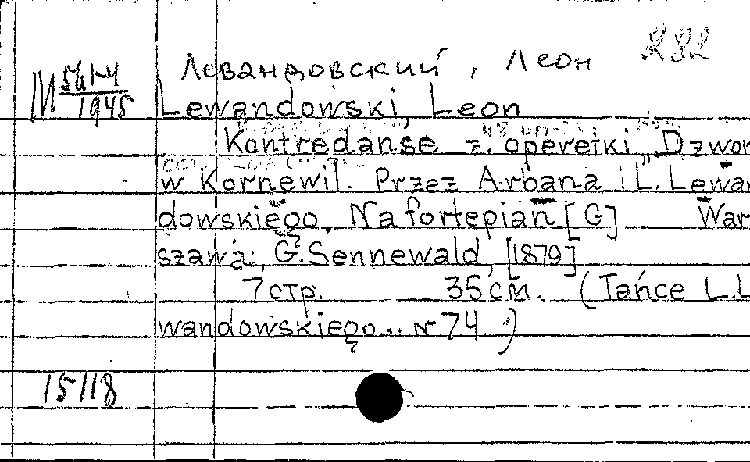 Левандовский, Леон 282
М 561-4
1945
Lewandowski, Leon
Kontredanse z operetki „Dzwon
w Kornewil. Przez Arbana i L. Lewan
dowskiego. Na fortepian [G] War
szawa, G. Sennewald, [1879]
7 стр. 35 см. (Tańce L. L
wandowskiego.. № 74)
15118